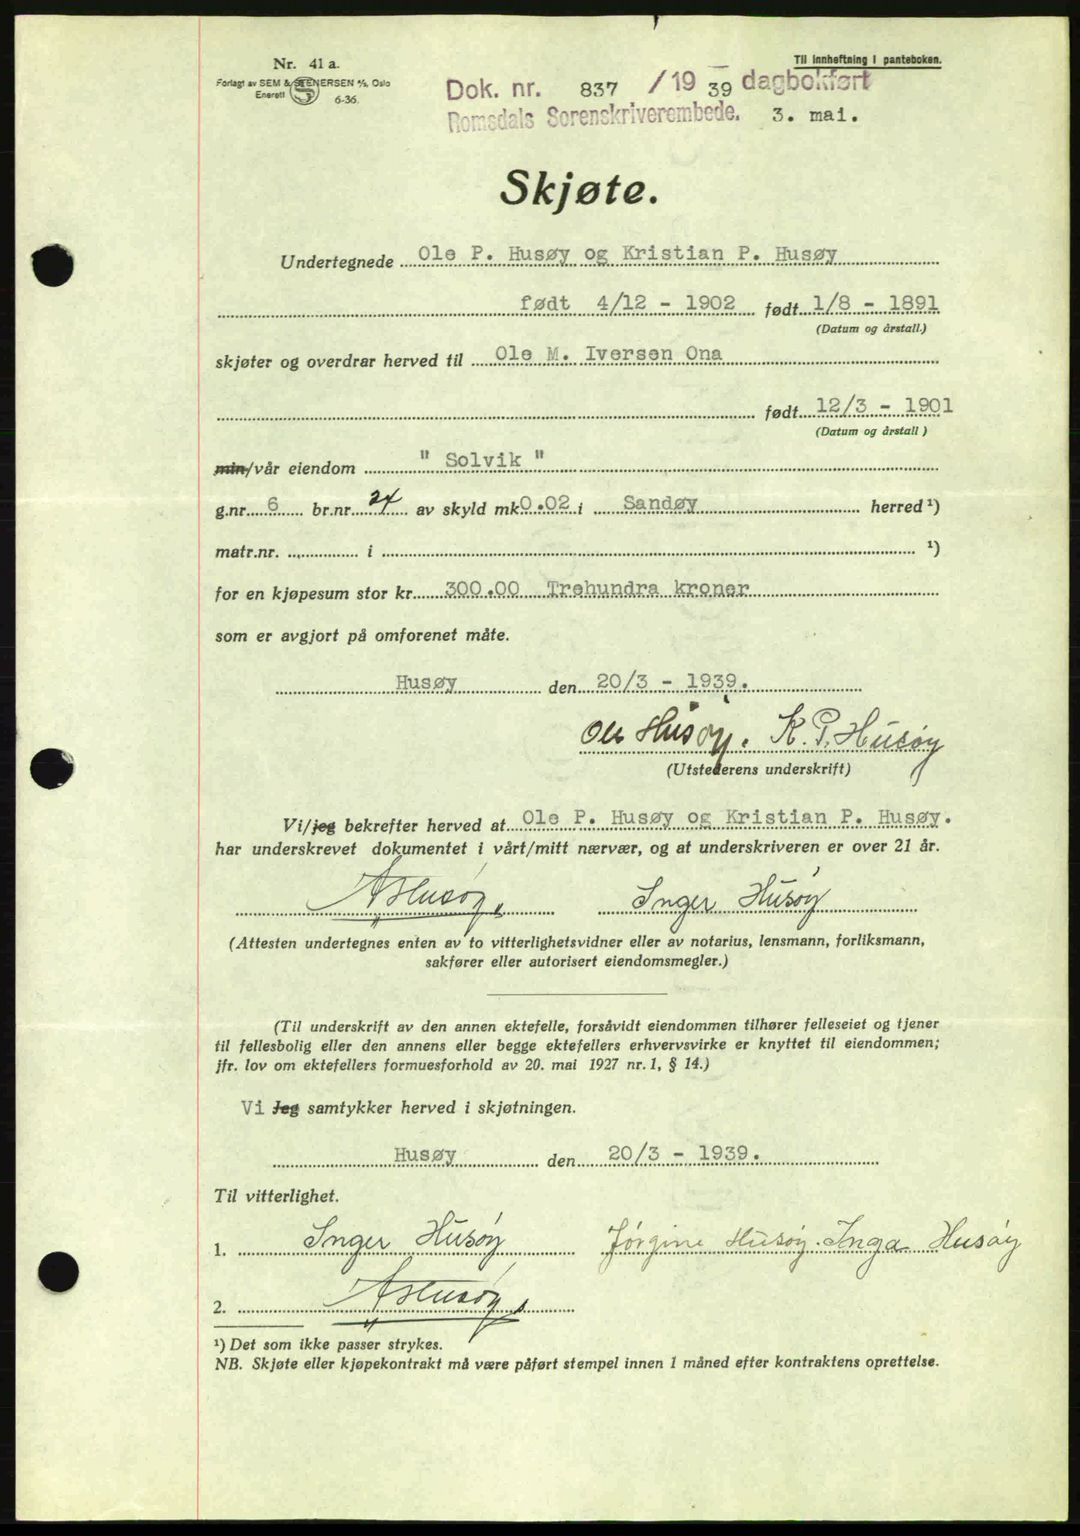 Nr. 41 a.
Forlagt av SEM & STENERSEN A/S, Oslo
Enerett 6-36.
Til innheftning i panteboken.
Dok. nr. 837 /19 39 dagbokført
Romsdals Sorenskriverembede. 3. mai.
Skjøte.
Undertegnede Ole P. Husøy og Kristian P. Husøy
født 4/12 - 1902 født 1/8 - 1891
(Datum og årstall.)
skjøter og overdrar herved til Ole M. Iversen Ona
født 12/3 - 1901
(Datum og årstall)
min/vår eiendom " Solvik "
g.nr. 6 br.nr. 24 av skyld mk 0.02 i Sandøy herred ¹)
matr.nr. i ¹)
for en kjøpesum stor kr. 300.00 Trehundra kroner
som er avgjort på omforenet måte.
Husøy den 20/3 - 1939.
Ole Husøy. K. P. Husøy
(Utstederens underskrift)
Vi/jeg bekrefter herved at Ole P. Husøy og Kristian P. Husøy.
har underskrevet dokumentet i vårt/mitt nærvær, og at underskriveren er over 21 år.
A Husøy Inger Husøy
(Attesten undertegnes enten av to vitterlighetsvidner eller av notarius, lensmann, forliksmann,
sakfører eller autorisert eiendomsmegler.)
(Til underskrift av den annen ektefelle, forsåvidt eiendommen tilhører felleseiet og tjener
til fellesbolig eller den annens eller begge ektefellers erhvervsvirke er knyttet til eiendommen;
jfr. lov om ektefellers formuesforhold av 20. mai 1927 nr. 1, § 14.)
Vi Jeg samtykker herved i skjøtningen.
Husøy den 20/3 - 1939.
Til vitterlighet.
1. Inger Husøy Jørgine Husøy. Inga Husøy
2. A Husøy
¹) Det som ikke passer strykes.
NB. Skjøte eller kjøpekontrakt må være påført stempel innen 1 måned efter kontraktens oprettelse.